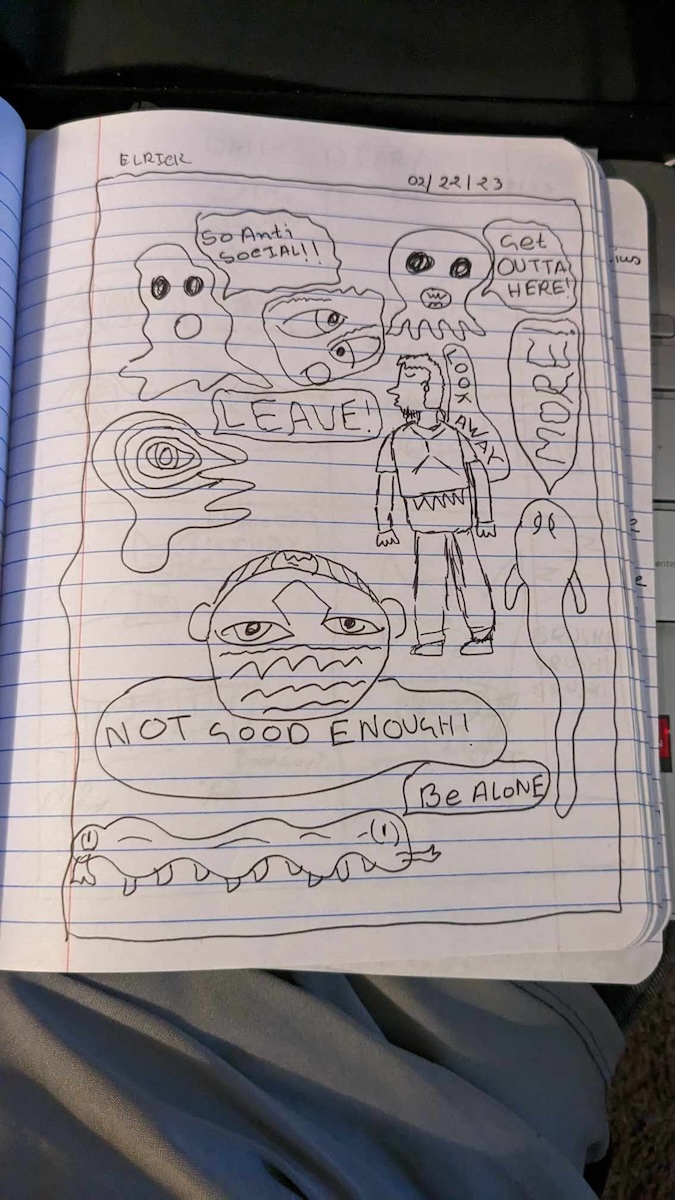 ELRICK
02/22/23
So Anti
SOCIAL!!
Get
OUTTA
HERE!
LEAVE!
LOOK
AWAY
MORE!
NOT GOOD ENOUGH!
Be ALONE